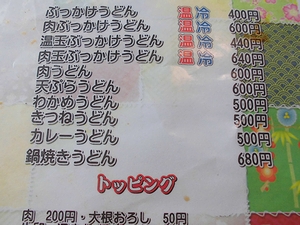 ぶっかけうどん 温 冷 400円
肉ぶっかけうどん 温 冷 600円
温玉ぶっかけうどん 温 冷 440円
肉玉ぶっかけうどん 温 冷 640円
肉うどん 600円
天ぷらうどん 600円
わかめうどん 500円
きつねうどん 500円
カレーうどん 500円
鍋焼きうどん 680円
トッピング
肉 200円・大根おろし 50円